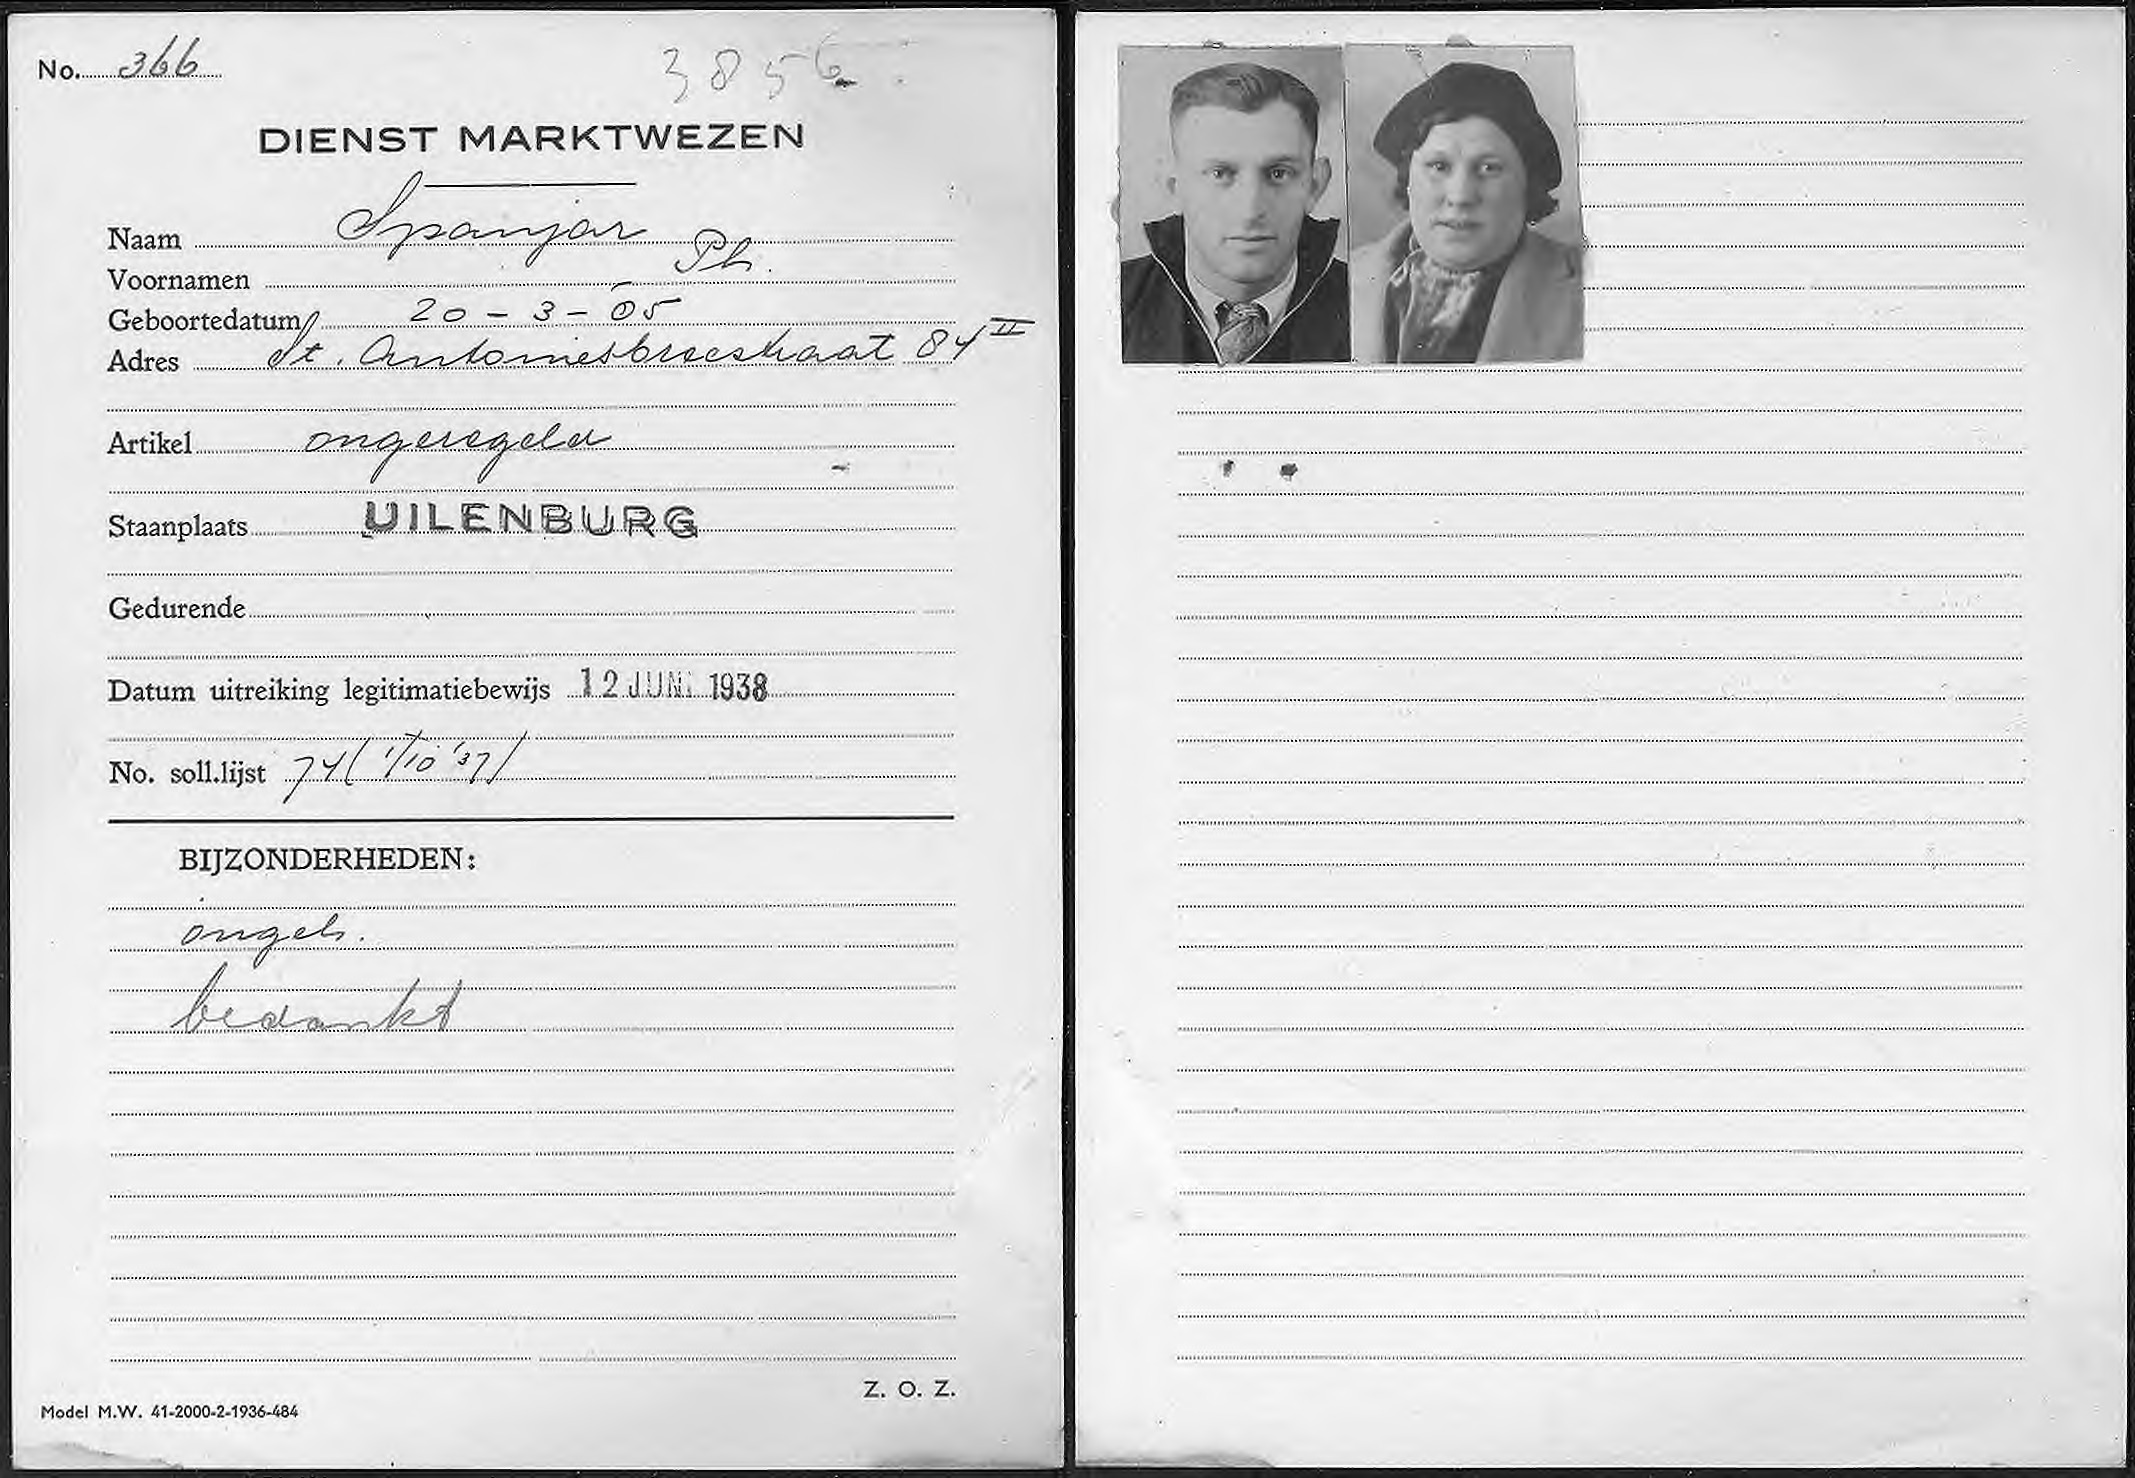 No. 366
3856
DIENST MARKTWEZEN
Naam Spanjar
Voornamen Ph.
Geboortedatum 20-3-05
Adres St. Antoniesbreestraat 84 II
Artikel ongeregeld
Staanplaats UILENBURG
Gedurende
Datum uitreiking legitimatiebewijs 12 JUNI 1938
No. soll.lijst 74 (1/10 '37)
BIJZONDERHEDEN:
ongeh.
bedankt
Z. O. Z.
Model M.W. 41-2000-2-1936-484